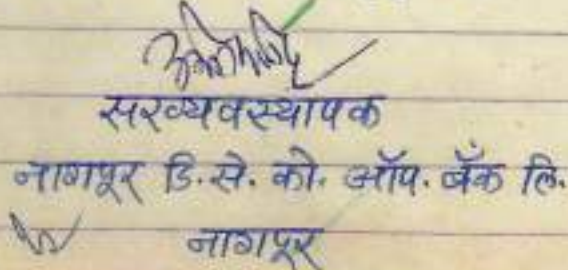 सरव्यवस्थापक
नागपूर डि.से. को. ऑप. बँक लि.
नागपूर